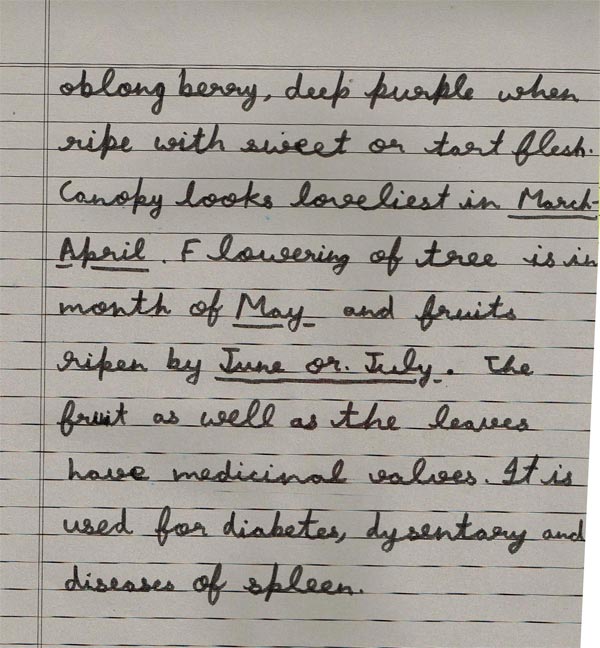 oblong berry, deep purple when
ripe with sweet or tart flesh.
Canopy looks loveliest in March-
April. Flowering of tree is in
month of May and fruits
ripen by June or July. The
fruit as well as the leaves
have medicinal values. It is
used for diabetes, dysentary and
diseases of spleen.